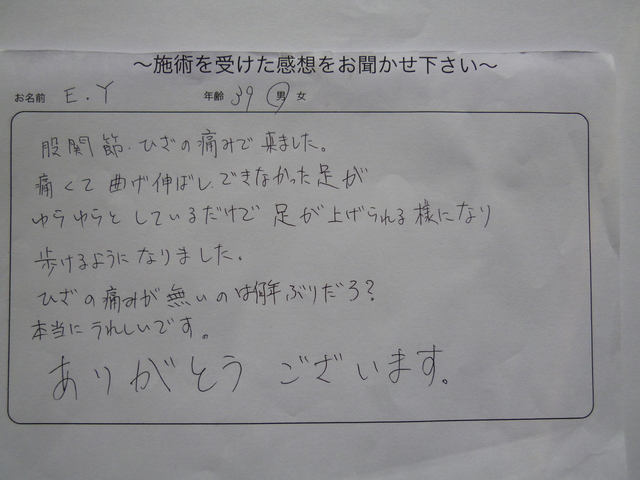 ～施術を受けた感想をお聞かせ下さい～
お名前 E.Y 年齢 39 男 女
股関節・ひざの痛みで来ました。
痛くて曲げ伸ばしできなかった足が
ゆらゆらとしているだけで足が上げられる様になり
歩けるようになりました。
ひざの痛みが無いのは何年ぶりだろ?
本当にうれしいです。
ありがとうございます。